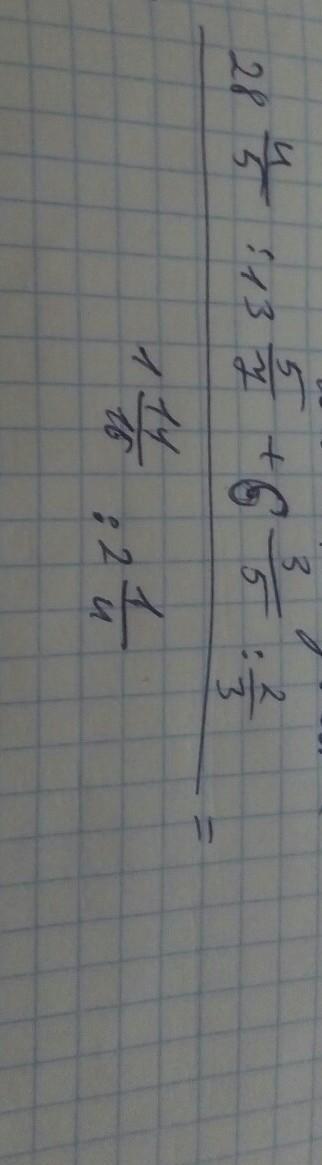 28 4/5 : 13 5/7 + 6 3/5 : 2/3 =
1 11/16 : 2 1/4